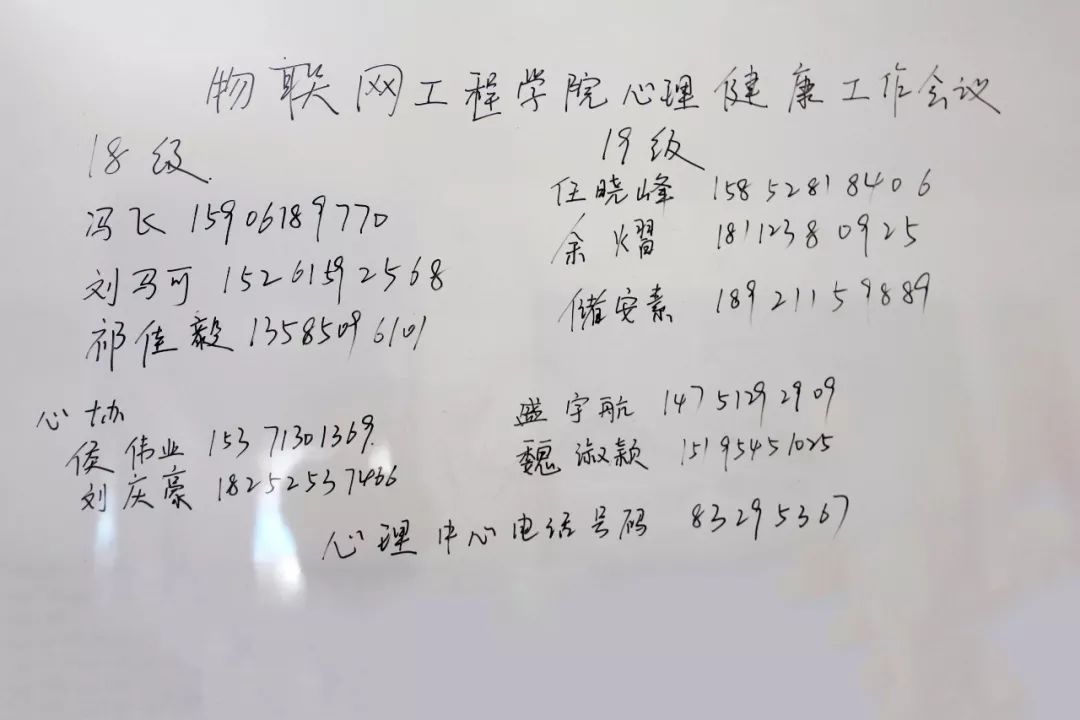 物联网工程学院心理健康工作会议
18级
冯飞 15906189770
刘马可 15261592568
祁佳毅 13585096101
19级
任晓峰 15852818406
余熠 18112380925
储安素 18921159889
心协
侯伟业 15371301369
刘庆豪 18252537466
盛宇航 14751292909
魏淑颖 15195451025
心理中心电话号码 83295367